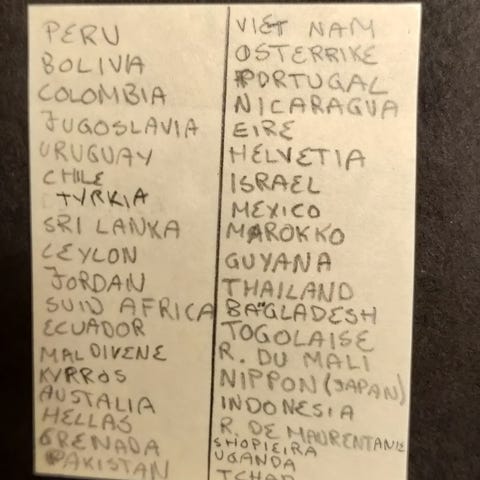 PERU
BOLIVIA
COLOMBIA
JUGOSLAVIA
URUGUAY
CHILE
TYRKIA
SRI LANKA
CEYLON
JORDAN
SUID AFRICA
ECUADOR
MALDIVENE
KYPROS
AUSTALIA
HELLAS
GRENADA
PAKISTAN
VIET NAM
OSTERRIKE
PORTUGAL
NICARAGUA
EIRE
HELVETIA
ISRAEL
MEXICO
MAROKKO
GUYANA
THAILAND
BAGLADESH
TOGOLAISE
R. DU MALI
NIPPON (JAPAN)
INDONESIA
R. DE MAURENTANIE
SHOPIEIRA
UGANDA
TCHAD